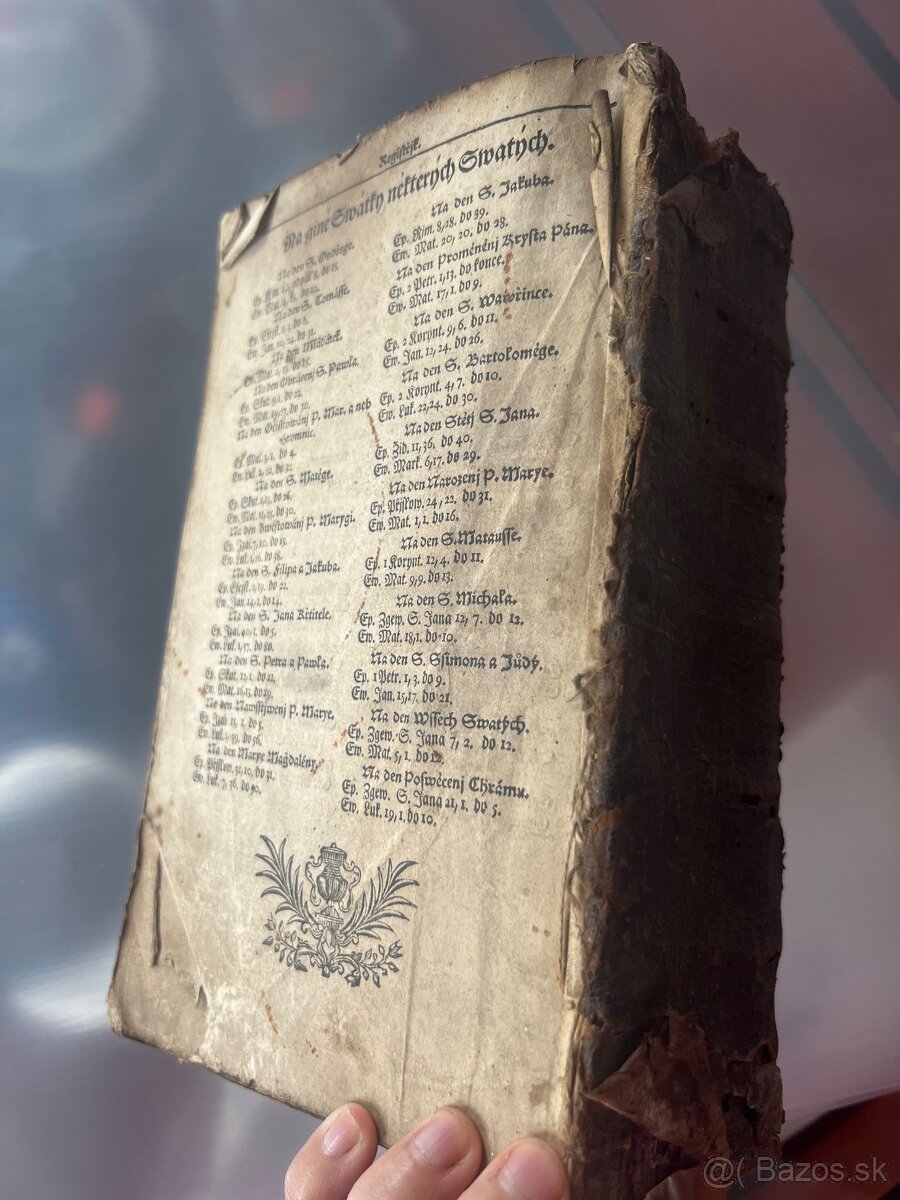 Registřjk.
Na giné Swátky některých Swatých.
Na den S. Ondřege.
Na den S. Tomásse.
Na den Mláďátek.
Na den Obrácenj S. Pawla.
Na den Očisstowánj P. Mar. a neb
Hromnic.
Ep. Mal. 3, 1. do 4.
Ew. Luk. 2, 22. do 32.
Na den S. Matěge.
Ep. Skut. 1, 15. do 26.
Ew. Mat. 11, 25. do 30.
Na den Zwěstowánj P. Marygi.
Ep. Izai. 7, 10. do 15.
Ew. Luk. 1, 26. do 38.
Na den S. Filipa a Jakuba.
Ep. Efezs. 2, 19. do 22.
Ew. Jan. 14, 1. do 14.
Na den S. Jana Křtitele.
Ep. Izai. 40, 1. do 5.
Ew. Luk. 1, 57. do 80.
Na den S. Petra a Pawla.
Ep. Skut. 12, 1. do 11.
Ew. Mat. 16, 13. do 19.
Na den Nawsstjwenj P. Marye.
Ep. Izai. 11, 1. do 5.
Ew. Luk. 1, 39. do 56.
Na den Marye Magdalény.
Ep. Přjslow. 31, 10. do 31.
Ew. Luk. 7, 36. do 50.
Na den S. Jakuba.
Ep. Řjm. 8, 28. do 39.
Ew. Mat. 20, 20. do 28.
Na den Proměněnj Krysta Pána.
Ep. 2 Petr. 1, 13. do konce.
Ew. Mat. 17, 1. do 9.
Na den S. Wawřince.
Ep. 2 Korynt. 9, 6. do 11.
Ew. Jan. 12, 24. do 26.
Na den S. Bartoloměge.
Ep. 2 Korynt. 4, 7. do 10.
Ew. Luk. 22, 24. do 30.
Na den Stětj S. Jana.
Ep. Žid. 11, 36. do 40.
Ew. Mark. 6, 17. do 29.
Na den Narozenj P. Marye.
Ep. Přjslow. 24, 22. do 31.
Ew. Mat. 1, 1. do 16.
Na den S. Matausse.
Ep. 1 Korynt. 12, 4. do 11.
Ew. Mat. 9, 9. do 13.
Na den S. Michala.
Ep. Zgew. S. Jana 12, 7. do 12.
Ew. Mat. 18, 1. do 10.
Na den S. Ssimona a Júdy.
Ep. 1 Petr. 1, 3. do 9.
Ew. Jan. 15, 17. do 21.
Na den Wssech Swatých.
Ep. Zgew. S. Jana 7, 2. do 12.
Ew. Mat. 5, 1. do 12.
Na den Poswěcenj Chrámu.
Ep. Zgew. S. Jana 21, 1. do 5.
Ew. Luk. 19, 1. do 10.
@( Bazos.sk